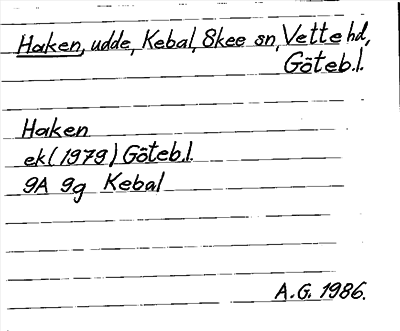 Haken, udde, Kebal, Skee sn, Vette hd,
Göteb.l.
Haken
ek (1979) Göteb.l.
9A 9g Kebal
A.G. 1986.